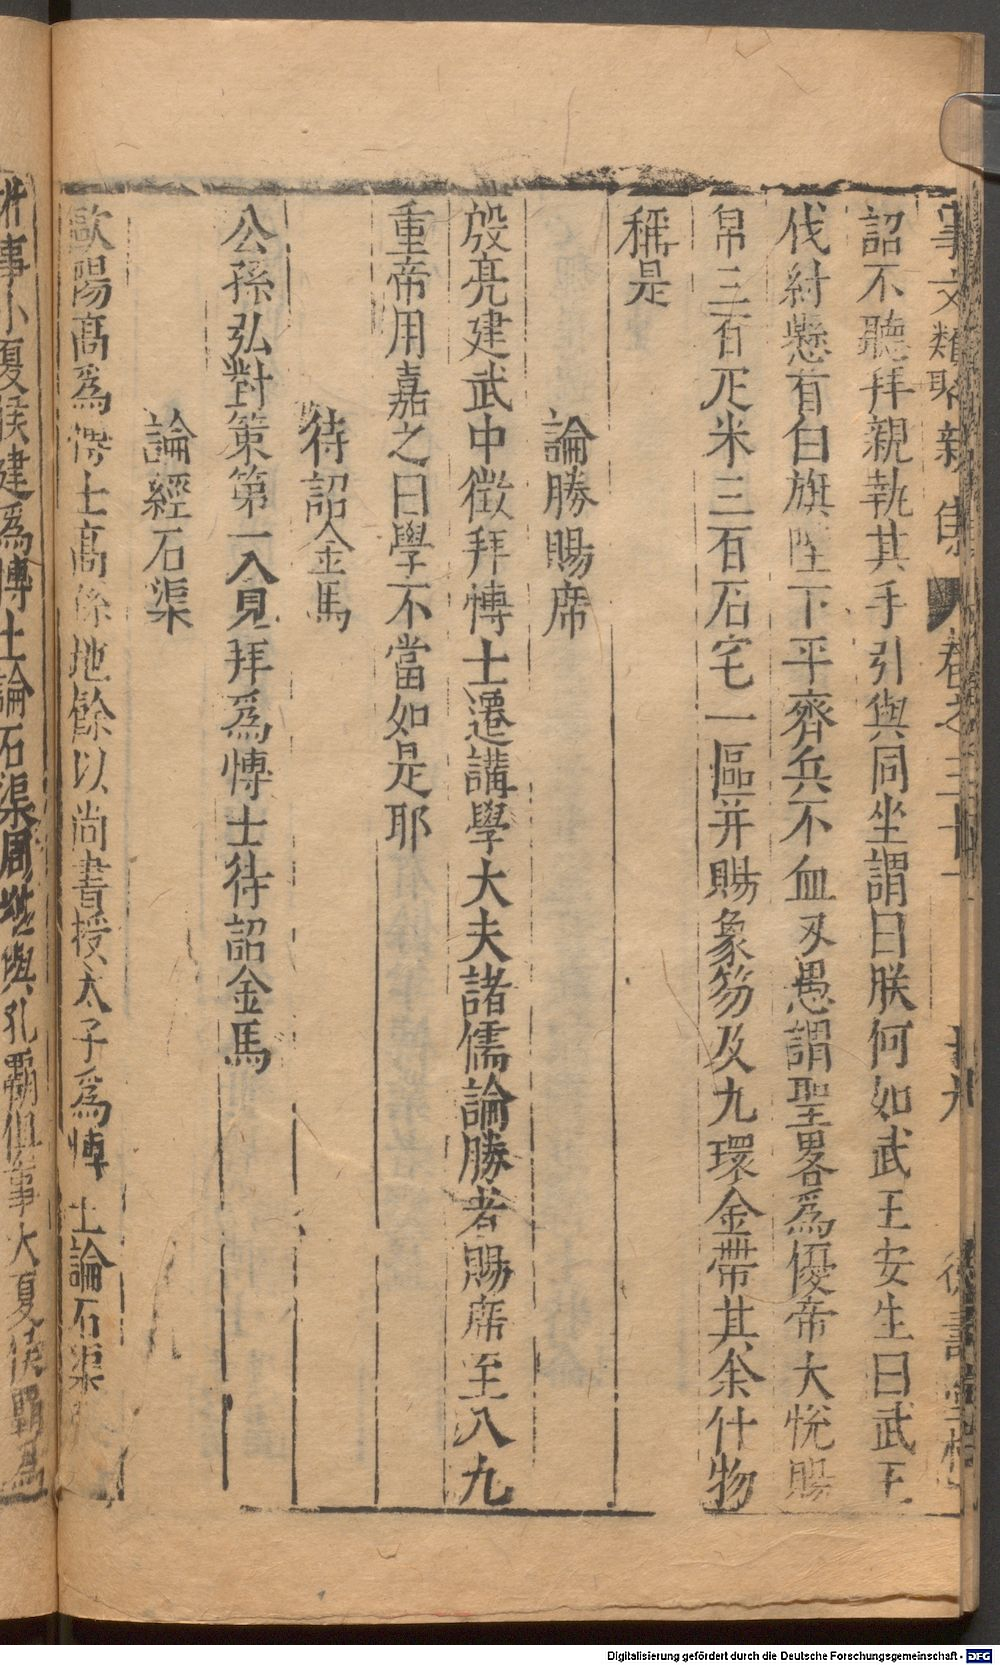 事文類聚新集 卷之三十一
詔不聽拜親執其手引與同坐謂曰朕何如武王安生曰武王
伐紂懸首白旗陛下平齊兵不血刃愚謂聖畧爲優帝大悅賜
帛三百疋米三百石宅一區并賜象笏及九環金帶其余什物
稱是
論勝賜席
殷亮建武中徵拜博士遷講學大夫諸儒論勝者賜席至八九
重帝用嘉之曰學不當如是耶
待詔金馬
公孫弘對策第一入見拜爲博士待詔金馬
論經石渠
歐陽髙爲博士髙孫地餘以尚書授太子爲博士論石渠
事小夏侯建爲博士論石渠周堪與孔覇俱事大夏侯覇爲
Digitalisierung gefördert durch die Deutsche Forschungsgemeinschaft - DFG